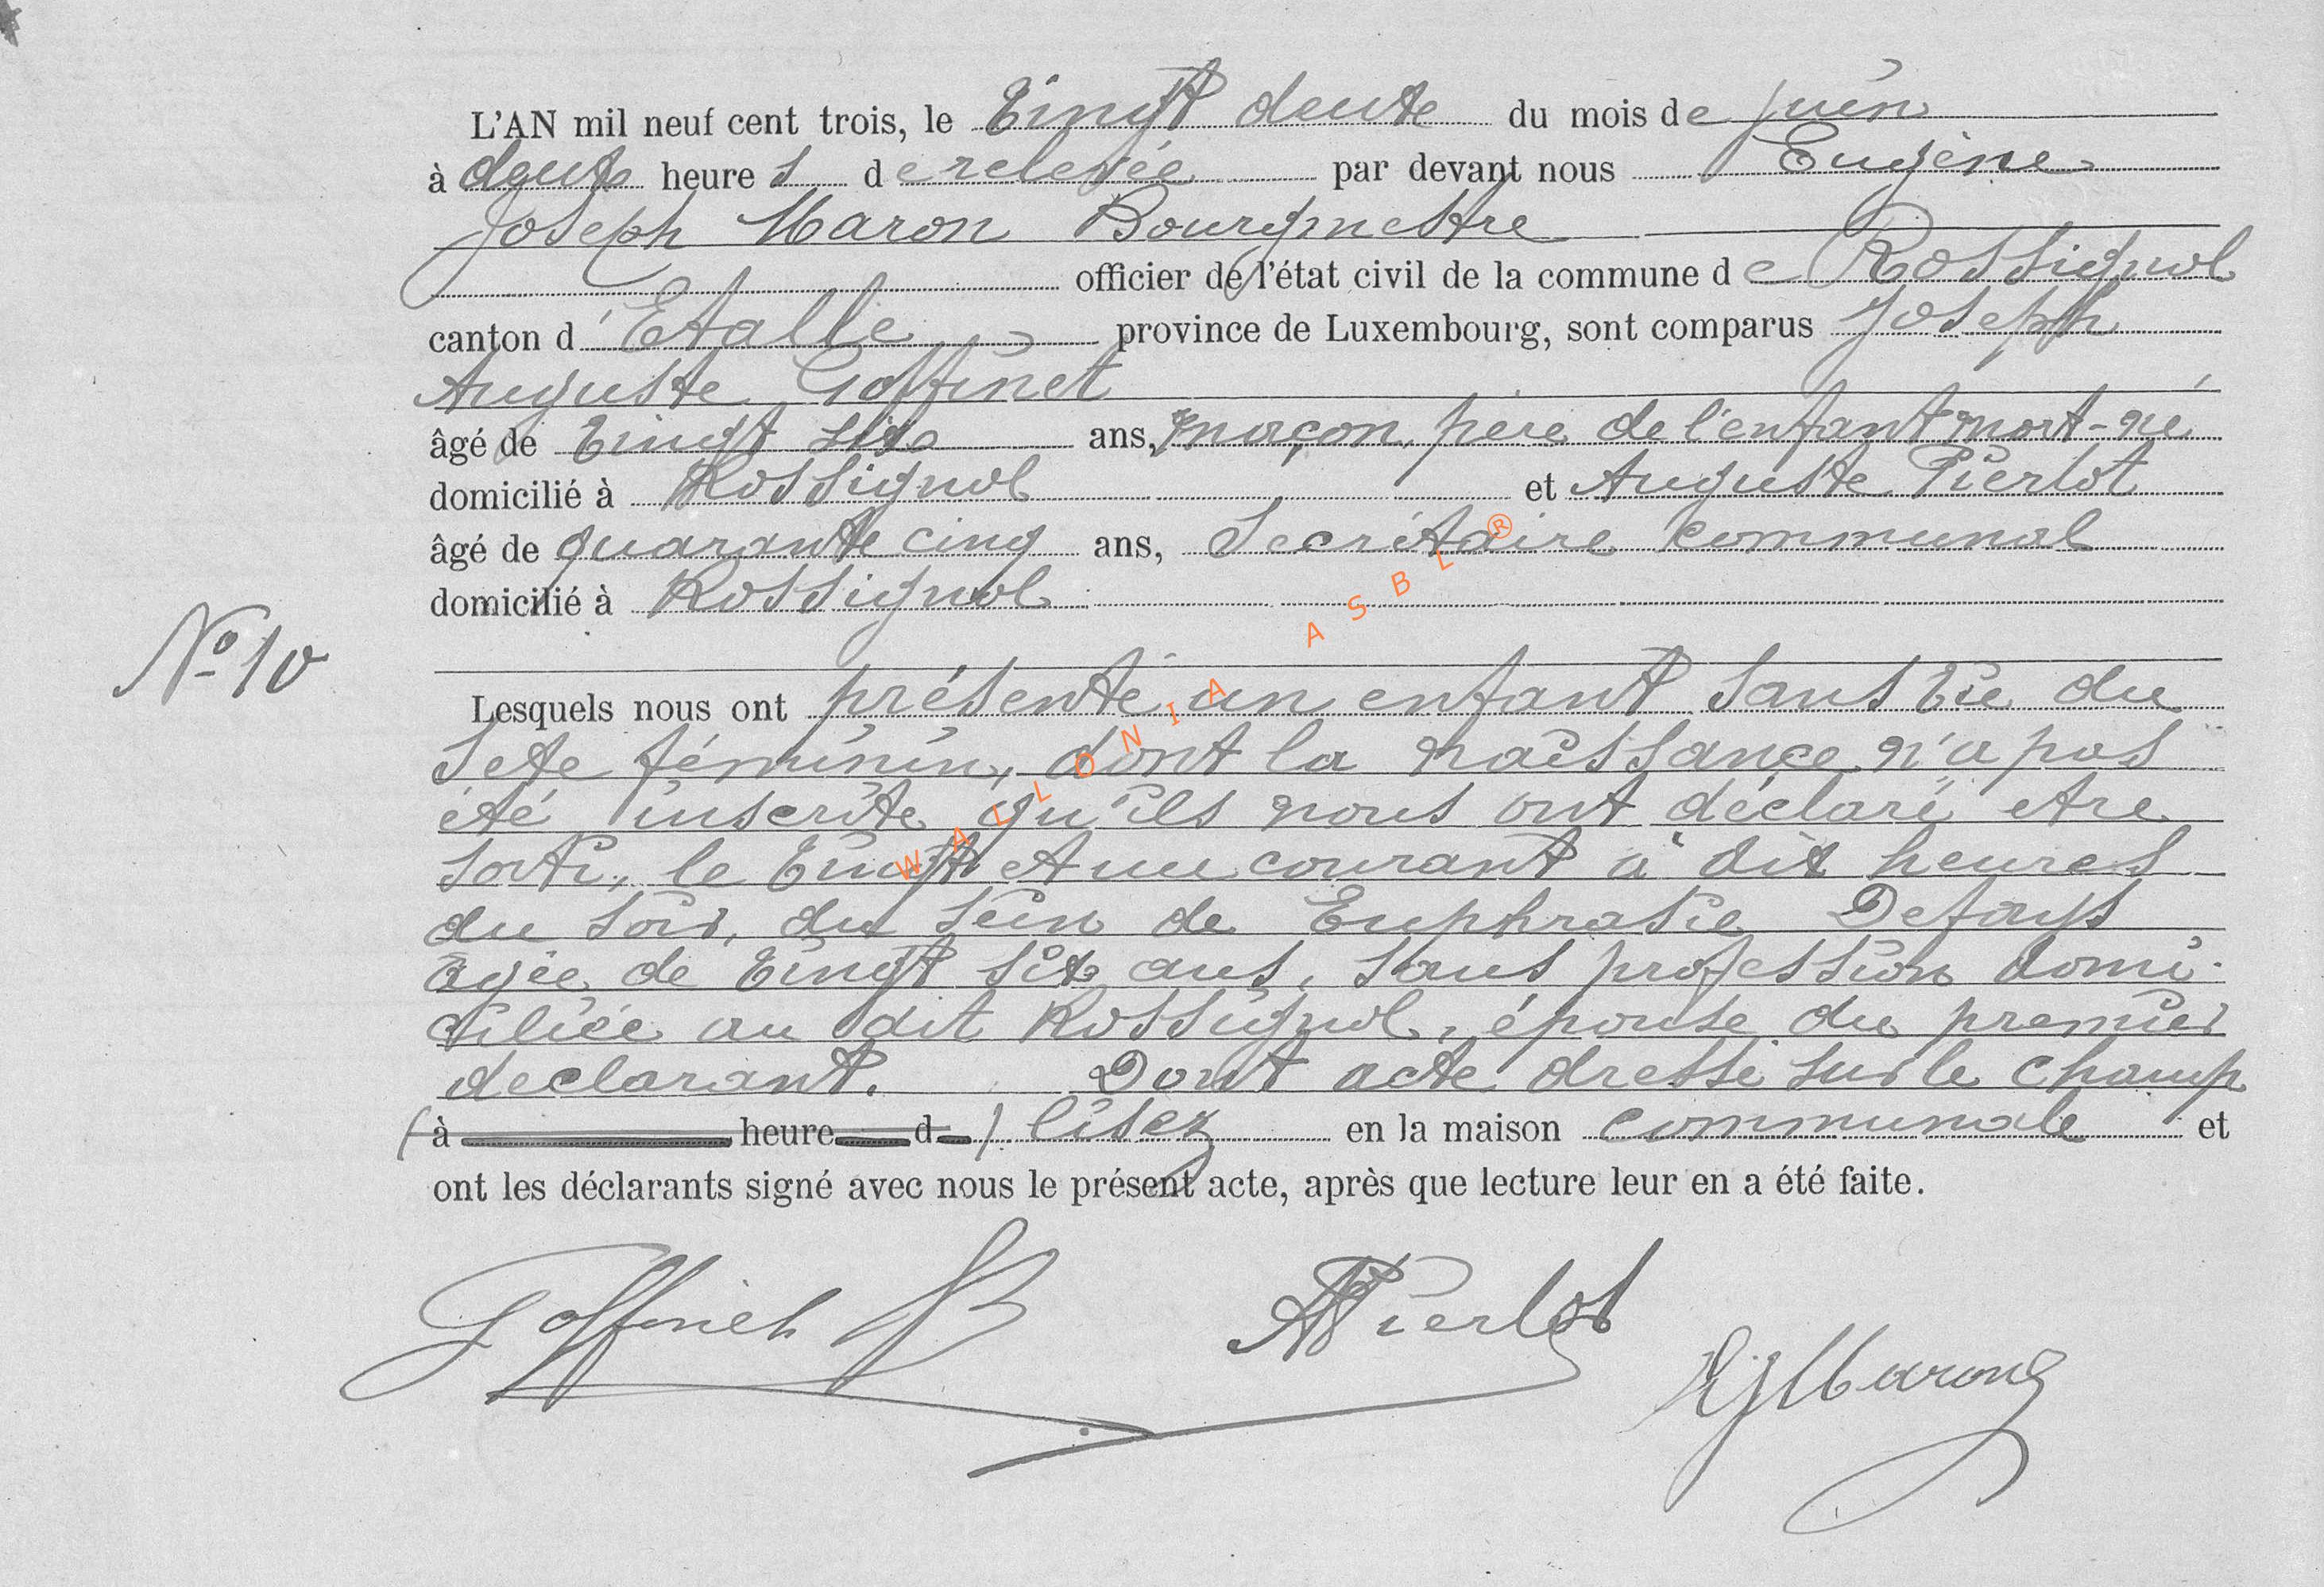 L'AN mil neuf cent trois, le vingt deux du mois de juin
à deux heures de relevée par devant nous Eugène
Joseph Maron Bourgmestre
officier de l'état civil de la commune de Rossignol
canton d'Etalle province de Luxembourg, sont comparus Joseph
Auguste Goffinet
âgé de vingt six ans, maçon, père de l'enfant mort-né
domicilié à Rossignol et Auguste Pierlot
âgé de quarante cinq ans, Secrétaire communal
domicilié à Rossignol
N° 10
Lesquels nous ont présenté un enfant sans vie du
sexe féminin, dont la naissance n'a pas
été inscrite qu'ils nous ont déclaré etre
sorti, le vingt et un courant à dix heures
du soir, du sein de Euphrasie Defays
âgée de vingt six ans, sans profession domi-
ciliée au dit Rossignol, épouse du premier
declarant. Dont acte dressé sur le champ
(à heure d ) lisez en la maison communale et
ont les déclarants signé avec nous le présent acte, après que lecture leur en a été faite.
Goffinet A Pierlot
EJMaron
WALLONIA ASBL ®